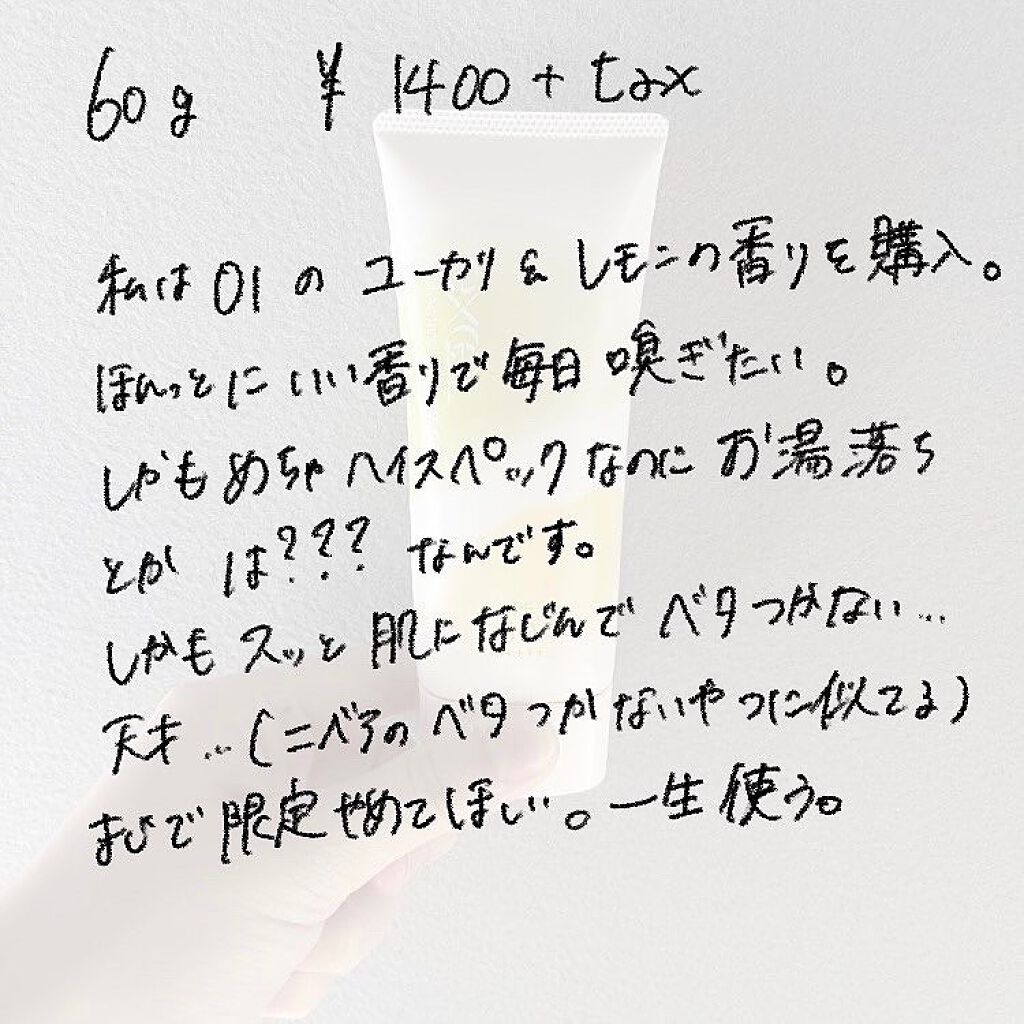 60g ¥ 1400 + tax
私は01の ユーカリ & レモンの香りを購入。
ほんっとにいい香りで毎日 嗅ぎたい。
しかもめちゃハイスペックなのにお湯落ち
とか は??? なんです。
しかもスッと肌になじんでベタつかない…
天才…(ニベアのベタつかないやつに似てる)
まじで限定やめてほしい。一生使う。